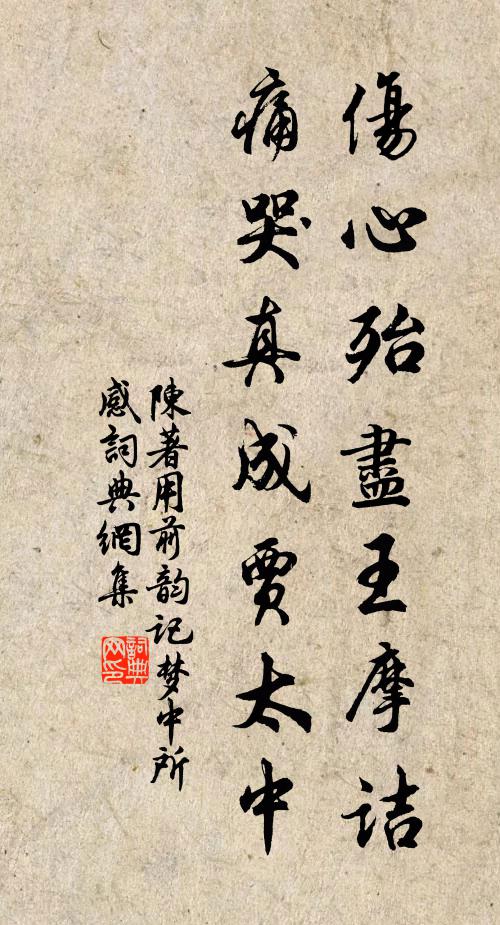 傷心殆盡王摩詰
痛哭真成賈太中
陳著用前韵記梦中所
感詞典網集
詞典
网印